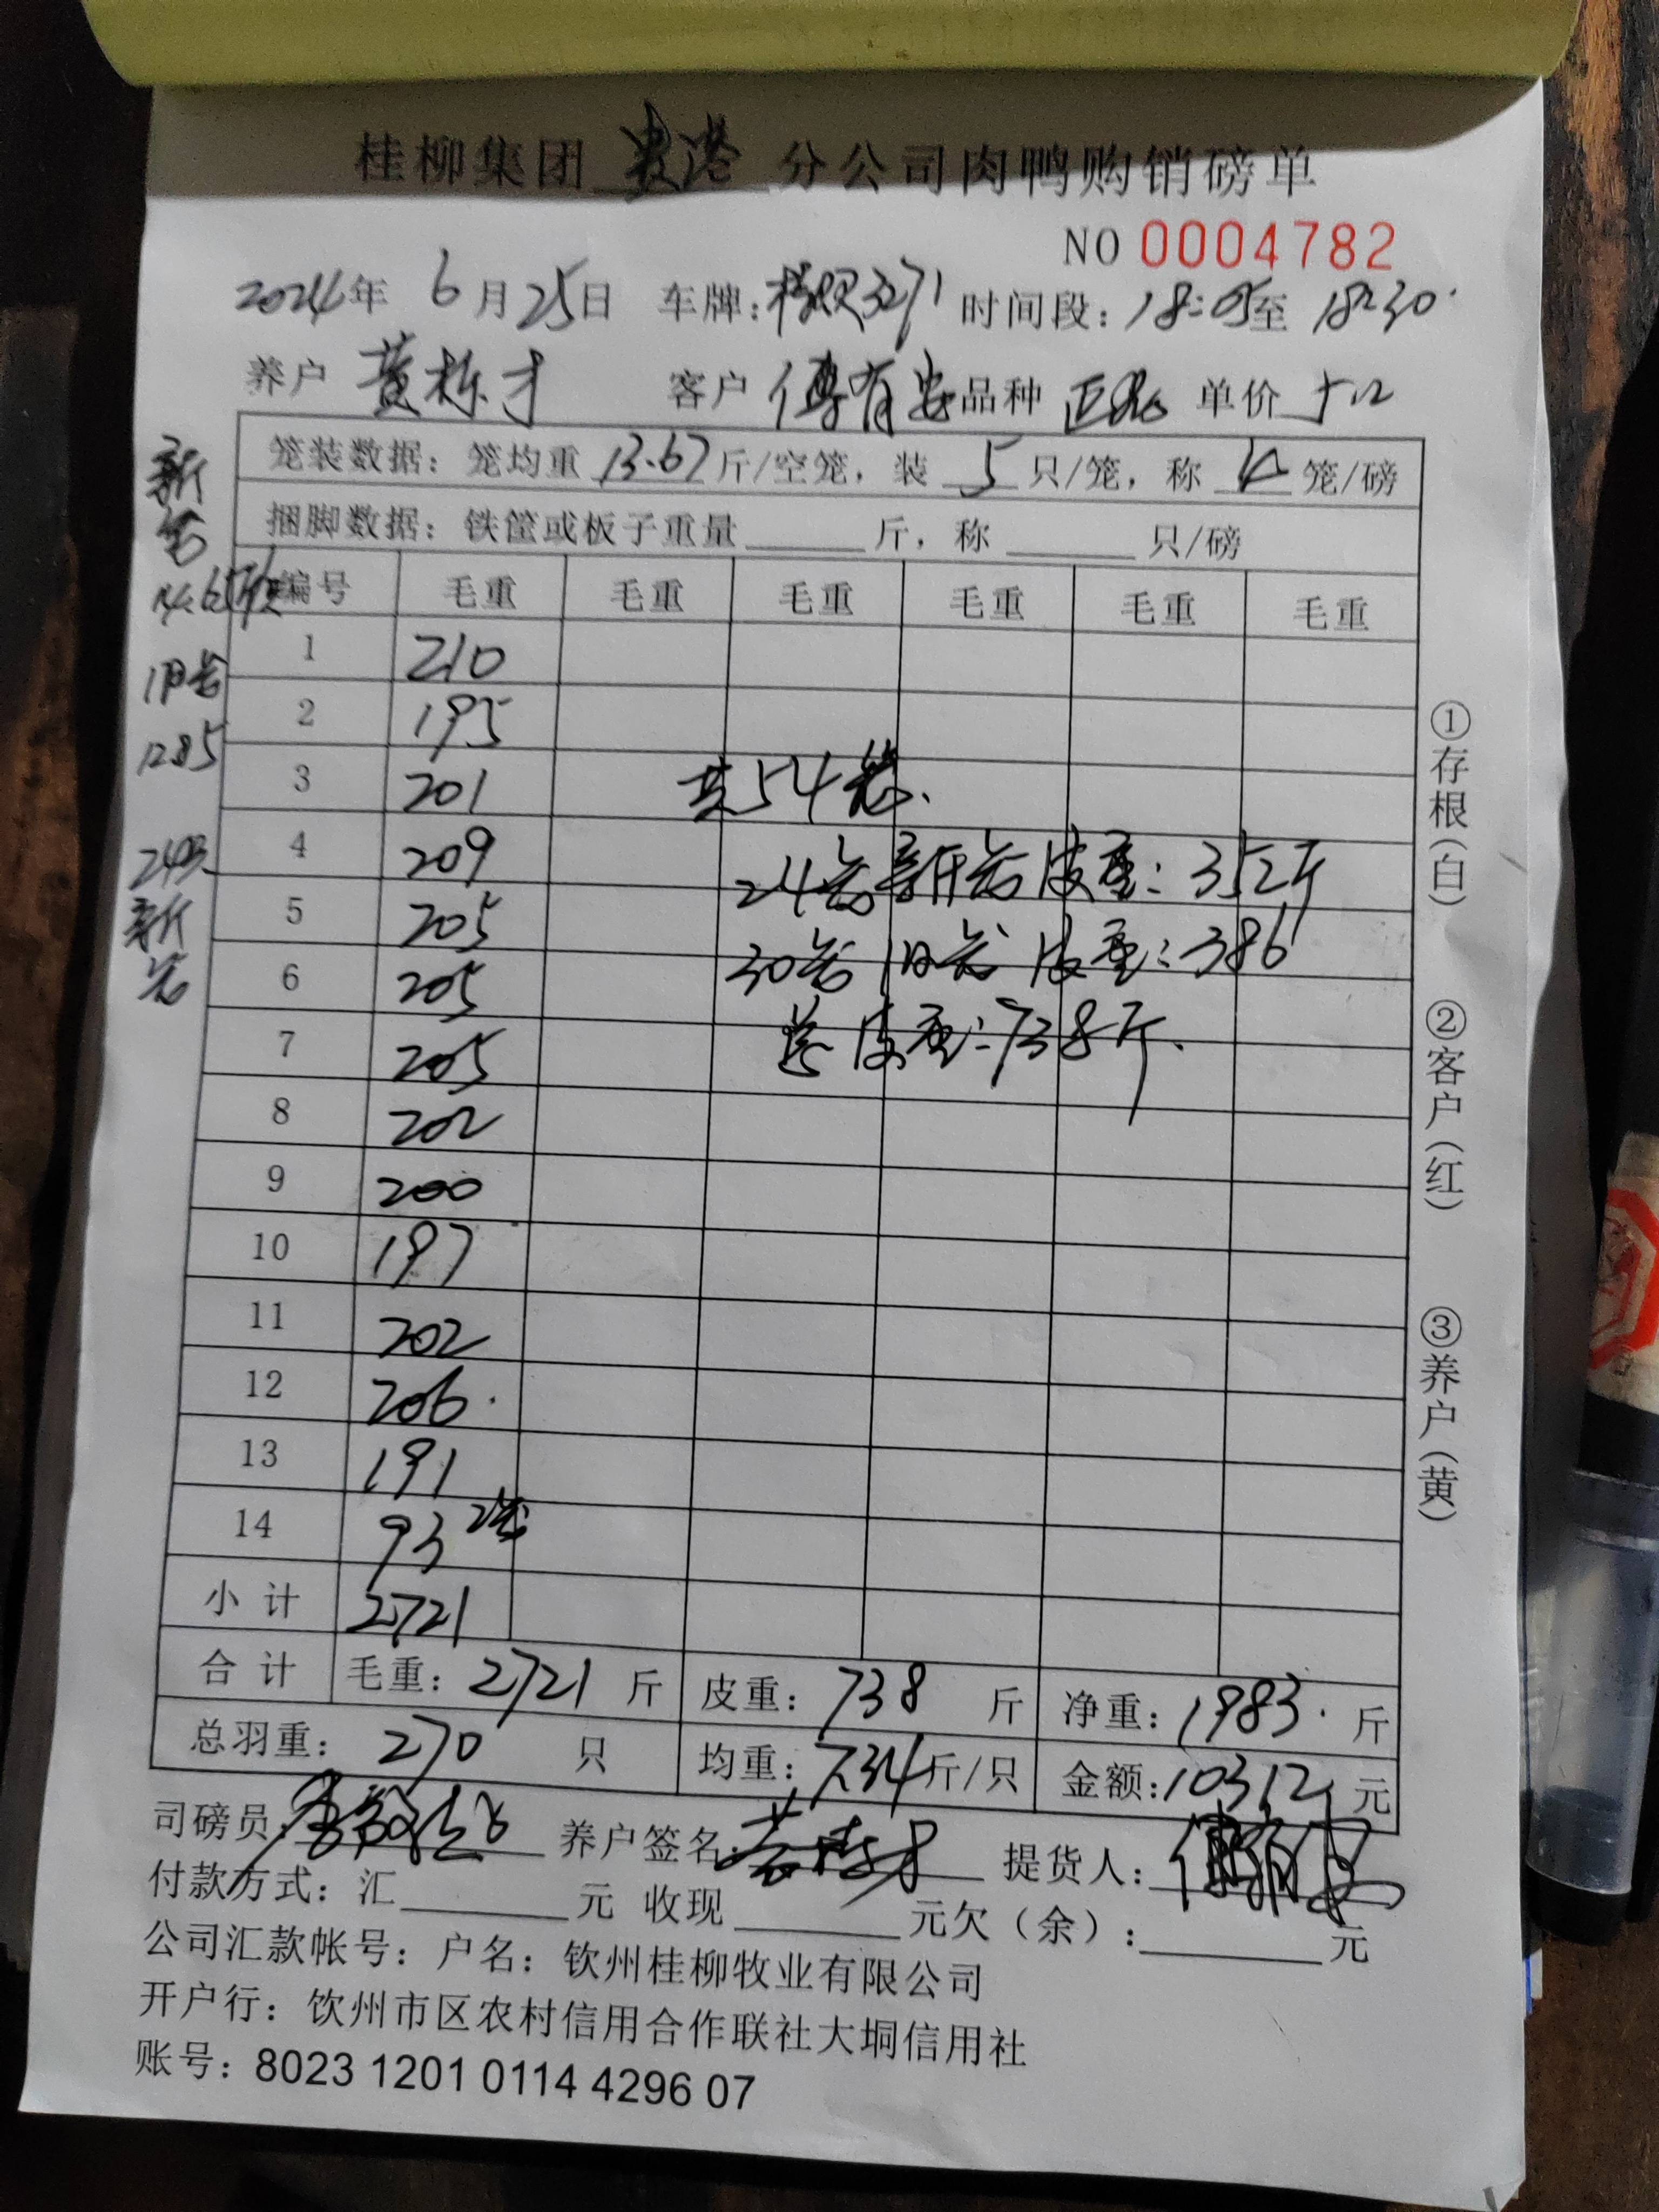 桂柳集团 贵港 分公司肉鸭购销磅单
NO 0004782
2024年 6月25日 车牌: 3271 时间段: 18:05至 18:30
养户 黄栋才 客户 傅有安 品种 正品 单价 5.2
笼装数据: 笼均重 13.67 斤/空笼, 装 5 只/笼, 称 4 笼/磅
捆脚数据: 铁筐或板子重量 斤, 称 只/磅
新笼
14.65
旧笼
12.85
24只新笼
编号 毛重 毛重 毛重 毛重 毛重 毛重
1 210
2 195
3 201 共54笼.
4 209 24笼新笼皮重: 352斤
5 205 30笼旧笼皮重: 386
6 205 总皮重: 738斤.
7 205
8 202
9 200
10 197
11 202
12 206.
13 191
14 93 2笼
小计 2721
合计 毛重: 2721 斤 皮重: 738 斤 净重: 1983. 斤
总羽重: 270 只 均重: 7.34 斤/只 金额: 10312 元
司磅员: 养户签名: 黄栋才 提货人: 傅有安
付款方式: 汇 元 收现 元欠(余): 元
公司汇款帐号: 户名: 钦州桂柳牧业有限公司
开户行: 饮州市区农村信用合作联社大垌信用社
账号: 8023 1201 0114 4296 07
①存根(白)
②客户(红)
③养户(黄)